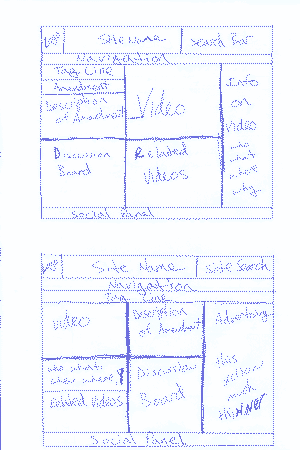 Site Name
Search Bar
Navigation
Tag Line
Description
of Amendment
Video
Info
on
Video
who
what
where
why
Discussion
Board
Related
Videos
Social Panel
Site Name
Site Search
Navigation
Tag Line
Video
Description
of Amendment
Advertising
who what
when where
Related Videos
Discussion
Board
this
column
much
thinner
Social Panel